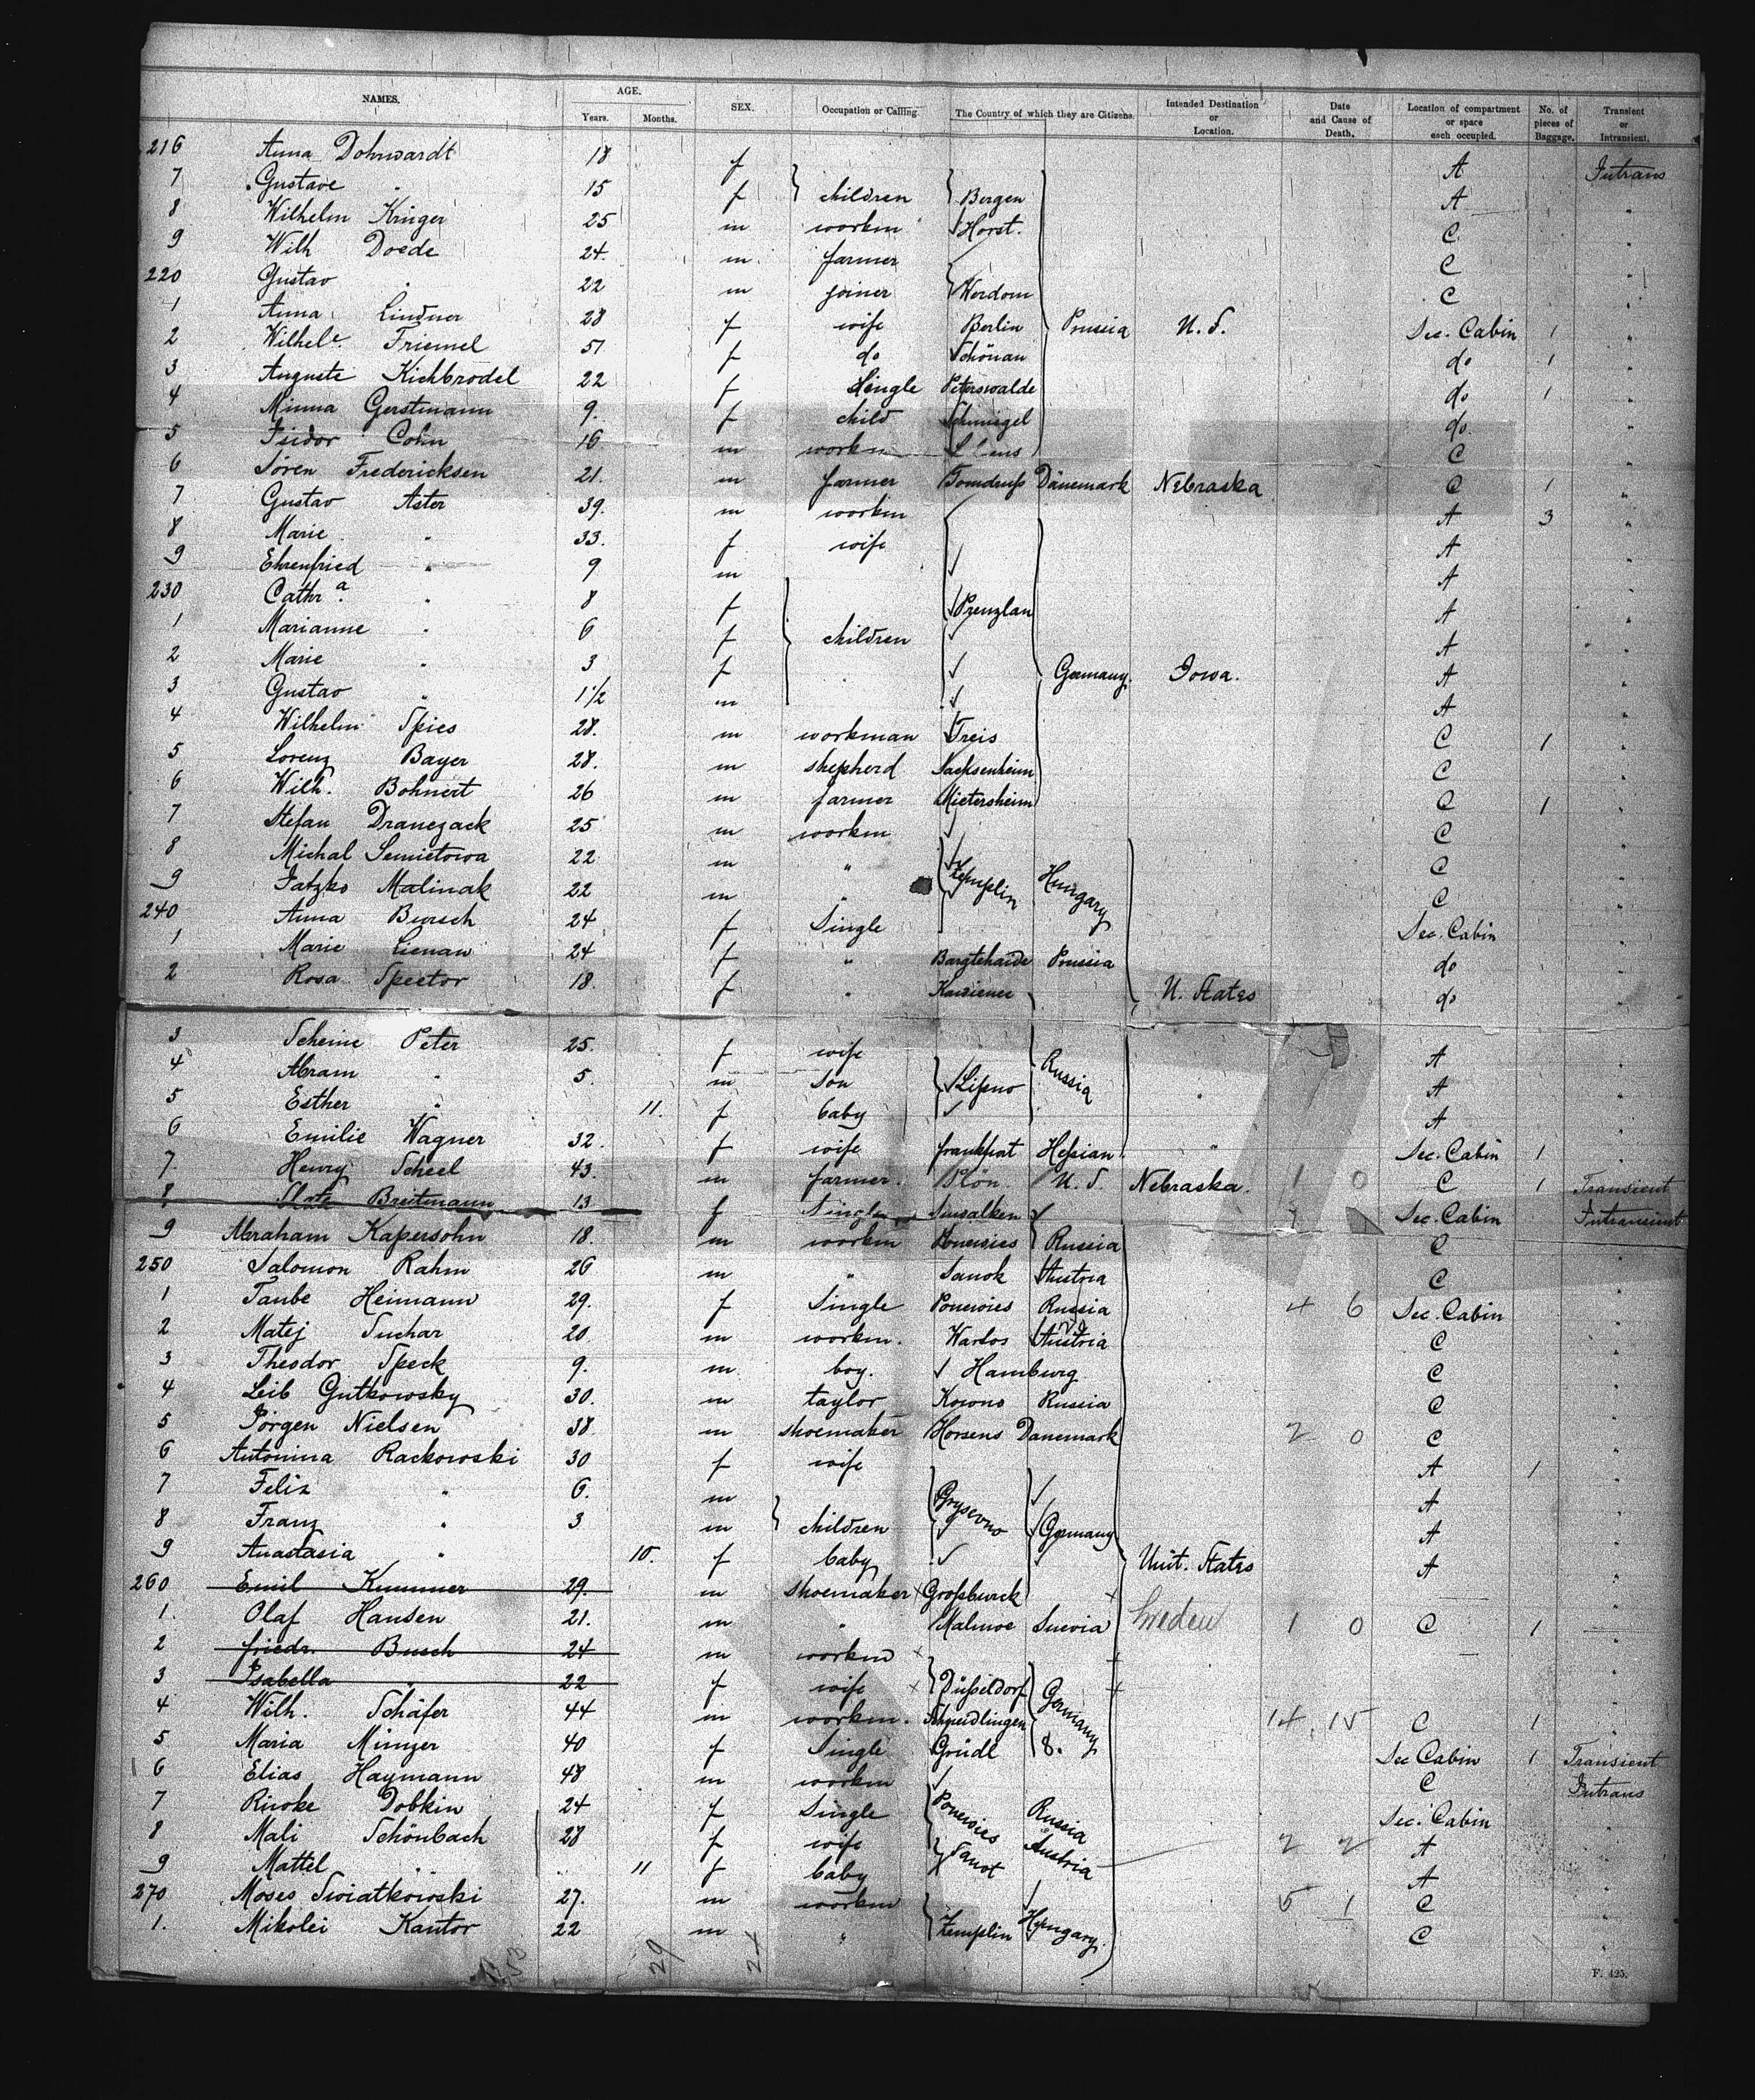 NAMES. AGE. Years. Months. SEX. Occupation or Calling. The Country of which they are Citizens. Intended Destination or Location. Date and Cause of Death. Location of compartment or space each occupied. No. of pieces of Baggage. Transient or Intransient.
216 Anna Dohnwardt 18 f A Intrans
7 Gustave " 15 f children Bergen A "
8 Wilhelm Krüger 25 m workm Horst. C "
9 Wilh Doede 24 m farmer C "
220 Gustav " 22 m joiner Werdom C "
1 Anna Lindner 28 f wife Berlin Prussia U. S. Sec. Cabin 1 "
2 Wilhele. Friemel 51 f do Schönau do 1 "
3 Auguste Kichbrodel 22 f Single Peterswalde do 1 "
4 Minna Gerstmann 9. f child Schmiegel do. "
5 Isidor Cohn 16 m workm C "
6 Sören Fredericksen 21. m farmer Tomdrup Dänemark Nebraska C 1 "
7 Gustav Aster 39. m workm A 3 "
8 Marie " 33. f wife A "
9 Ehrenfried " 9 m A "
230 Cathra. " 8 f Prenzlau A "
1 Marianne " 6 f children A "
2 Marie " 3 f Germany. Iowa. A "
3 Gustav " 1 1/2 m A "
4 Wilhelm Spies 28. m workman Treis C 1 "
5 Lorenz Bayer 28. m shepherd Sachsenheim C "
6 Wilh. Bohnert 26 m farmer Mietersheim C 1 "
7 Stefan Dranczack 25 m workm C "
8 Michal Semietowa 22 m " Zemplin Hungary C "
9 Jatzko Malinak 22 m " C "
240 Anna Bursch 24 f Single Sec. Cabin "
1 Marie Lienau 24 f " Bargtehaide Prussia do "
2 Rosa Spector 18. f " U. States do "
3 Scheine Peter 25. f wife A "
4 Abram " 5. m son Lipno Russia A "
5 Esther " 11. f baby A "
6 Emilie Wagner 32. f wife frankfurt Hessian " Sec. Cabin 1 "
7. Henry Scheel 43. m farmer. Plön U. S. Nebraska. 1 0 C 1 Transient
8 Breitmann 13 f Single Suwalken Sec. Cabin Intransient
9 Abraham Kapersohn 18. m workm Ponewies Russia C "
250 Salomon Rahm 26 m " Sanok Austria C "
1 Taube Heimann 29. f Single Ponewies Russia 4 6 Sec. Cabin "
2 Matej Suchar 20. m workm. Austria C "
3 Theodor Speck 9. m boy. Hamburg C "
4 Leib Gutkowsky 30. m taylor Kowno Russia C "
5 Jörgen Nielsen 38. m shoemaker Horsens Danemark 2 0 C "
6 Antonina Rackowski 30 f wife A 1 "
7 Felix " 6. m A "
8 Franz " 3 m children Germany A "
9 Anastasia " 10. f baby Unit. States A "
260 Emil Kummer 29. m shoemaker Grossburck "
1. Olaf Hansen 21. m " Malmoe Suevia Sweden 1 0 C 1 "
2 friedr. Busch 24 m workm "
3 Isabella " 22 f wife Düsseldorf Germany "
4 Wilh. Schäfer 44 m workm. Schneidlingen 14 15 C 1 "
5 Maria Minzer 40 f Single Gründl Sec Cabin 1 Transient
6 Elias Haymann 48 m workm C Intrans
7 Rivoke Dobkin 24 f Single Ponewies Russia Sec. Cabin "
8 Mali Schönbach 28 f wife Sanok Austria 2 2 A "
9 Mattel " 11 f baby A "
270 Moses Swiatkowski 27. m workm 5 1 C "
1. Mikolei Kantor 22 m " Zemplin Hungary. C "
29
F. 425.